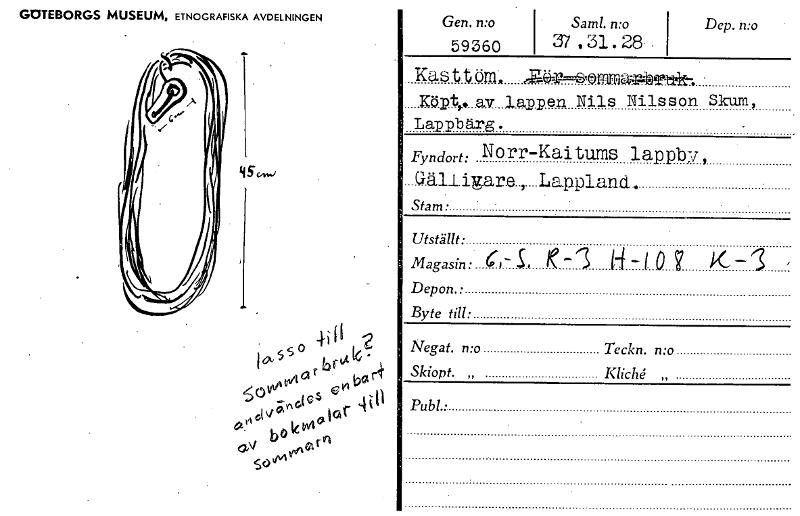 GÖTEBORGS MUSEUM, ETNOGRAFISKA AVDELNINGEN
6 cm
45 cm
lasso till
sommarbruk?
andvändes enbart
av bokmalar till
sommarn
Gen. n:o Saml. n:o Dep. n:o
59360 37.31.28
Kasttöm. För sommarbruk.
Köpt. av lappen Nils Nilsson Skum,
Lappbärg.
Fyndort: Norr-Kaitums lappby,
Gällivare, Lappland.
Stam:
Utställt:
Magasin: G.-S. R-3 H-108 K-3
Depon.:
Byte till:
Negat. n:o Teckn. n:o
Skiopt. „ Kliché „
Publ.: